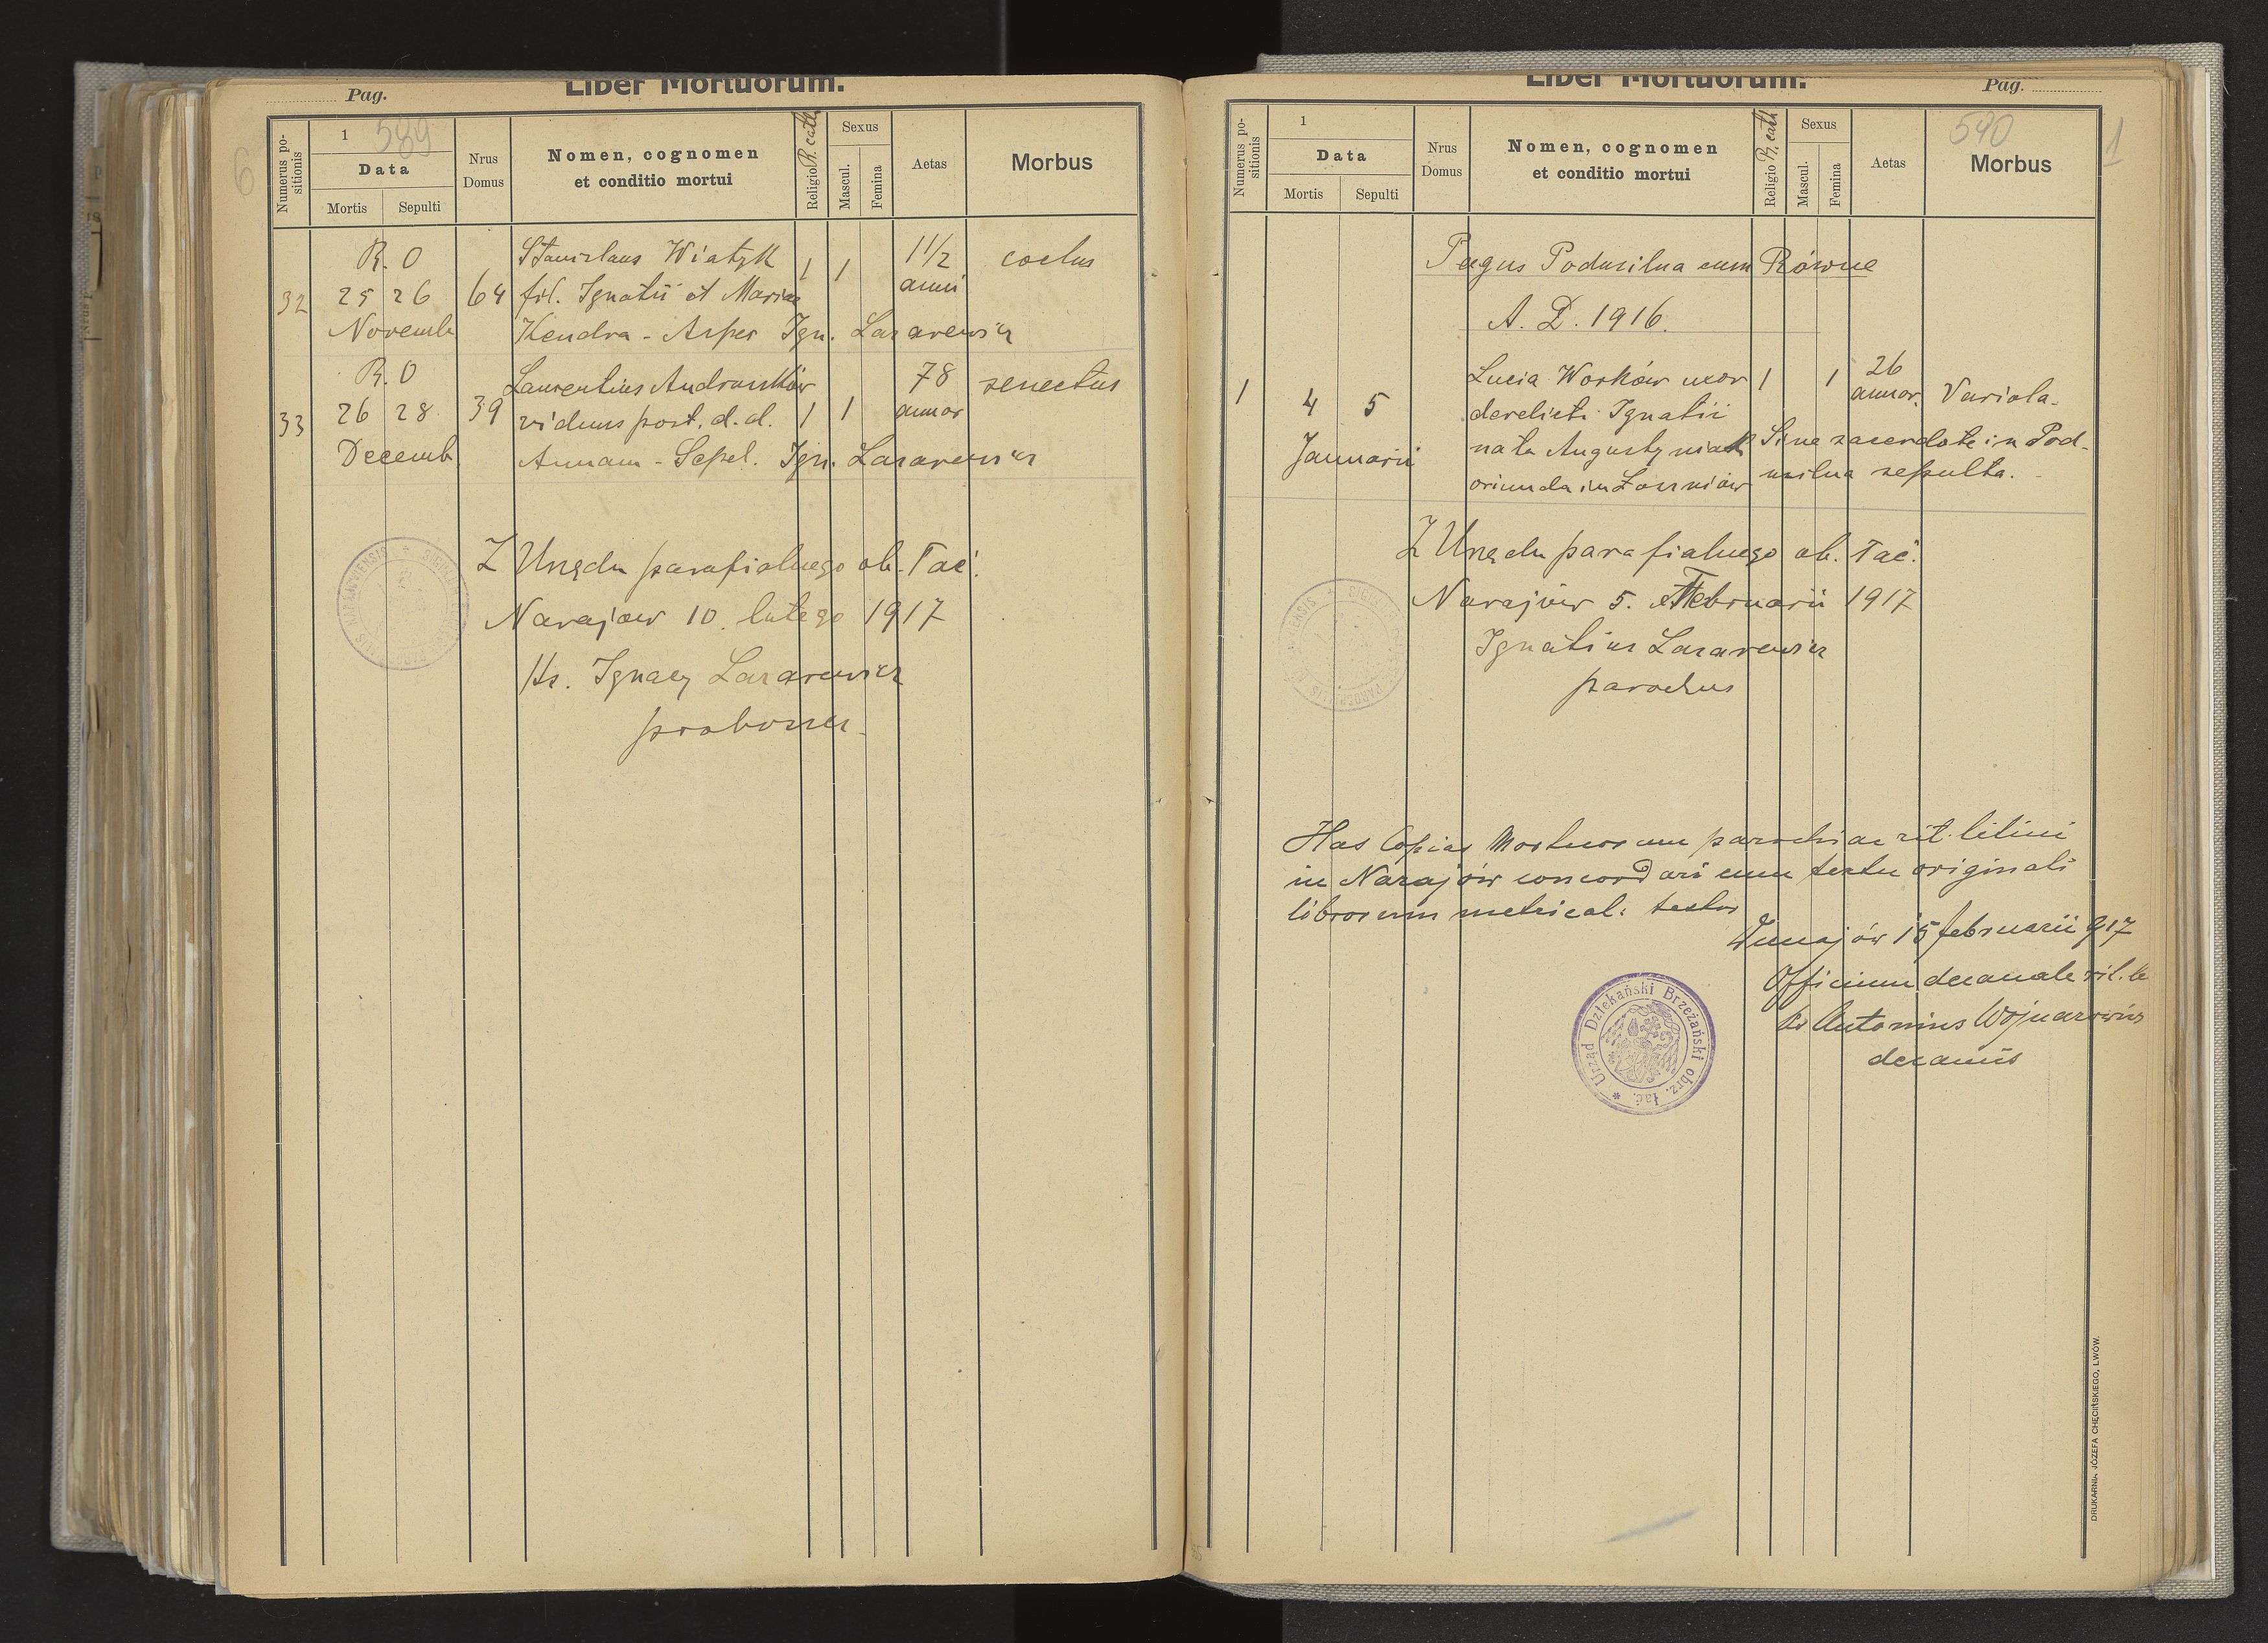 Liber Mortuorum.
Pag.
589
6
Numerus positionis
1
Data
Mortis
Sepulti
Nrus Domus
Nomen, cognomen
et conditio mortui
Religio R. cath
Sexus
Mascul.
Femina
Aetas
Morbus
R. O Stanislaus Wiatyk 1 1 1 1/2 coctus
32 25 26 64 fil. Ignatii et Mariae anni
Novemb Kendra - Asper Ign. Lazarewicz
R. O Laurentius Andrusków 78 senectus
33 26 28 39 viduus post. d. d. 1 1 annor
Decemb. Annam - Sepel. Ign. Lazarewicz
Z Urzędu parafialnego ob. łać.
Narajow 10. lutego 1917
Ks. Ignacy Lazarewicz
proboszcz
Liber Mortuorum.
Pag.
590
1
Numerus positionis
1
Data
Mortis
Sepulti
Nrus Domus
Nomen, cognomen
et conditio mortui
Religio R. cath
Sexus
Mascul.
Femina
Aetas
Morbus
Pagus Podusilna cum Równe
A. D. 1916.
Lucia Worków uxor 1 1 26
1 4 5 derelicti Ignatii annor. Variola.
Januarii nata Augustyniak Sine sacerdote in Pod-
oriunda in usilna sepulta.
Z Urzędu parafialnego ob. łać.
Narajów 5. Februarii 1917
Ignatius Lazarewicz
parochus
Has Copias Mortuorum parochiae rit. latini
in Narajów concordari cum textu originali
librorum metrical: testor
Dunajów 15 februarii 917
Officium decanale rit. la
ks Antonius Wojnarowicz
decanus
* Urząd Dziekański Brzeżański obrz. łać.
DRUKARNIA JÓZEFA CHĘCIŃSKIEGO, LWÓW.